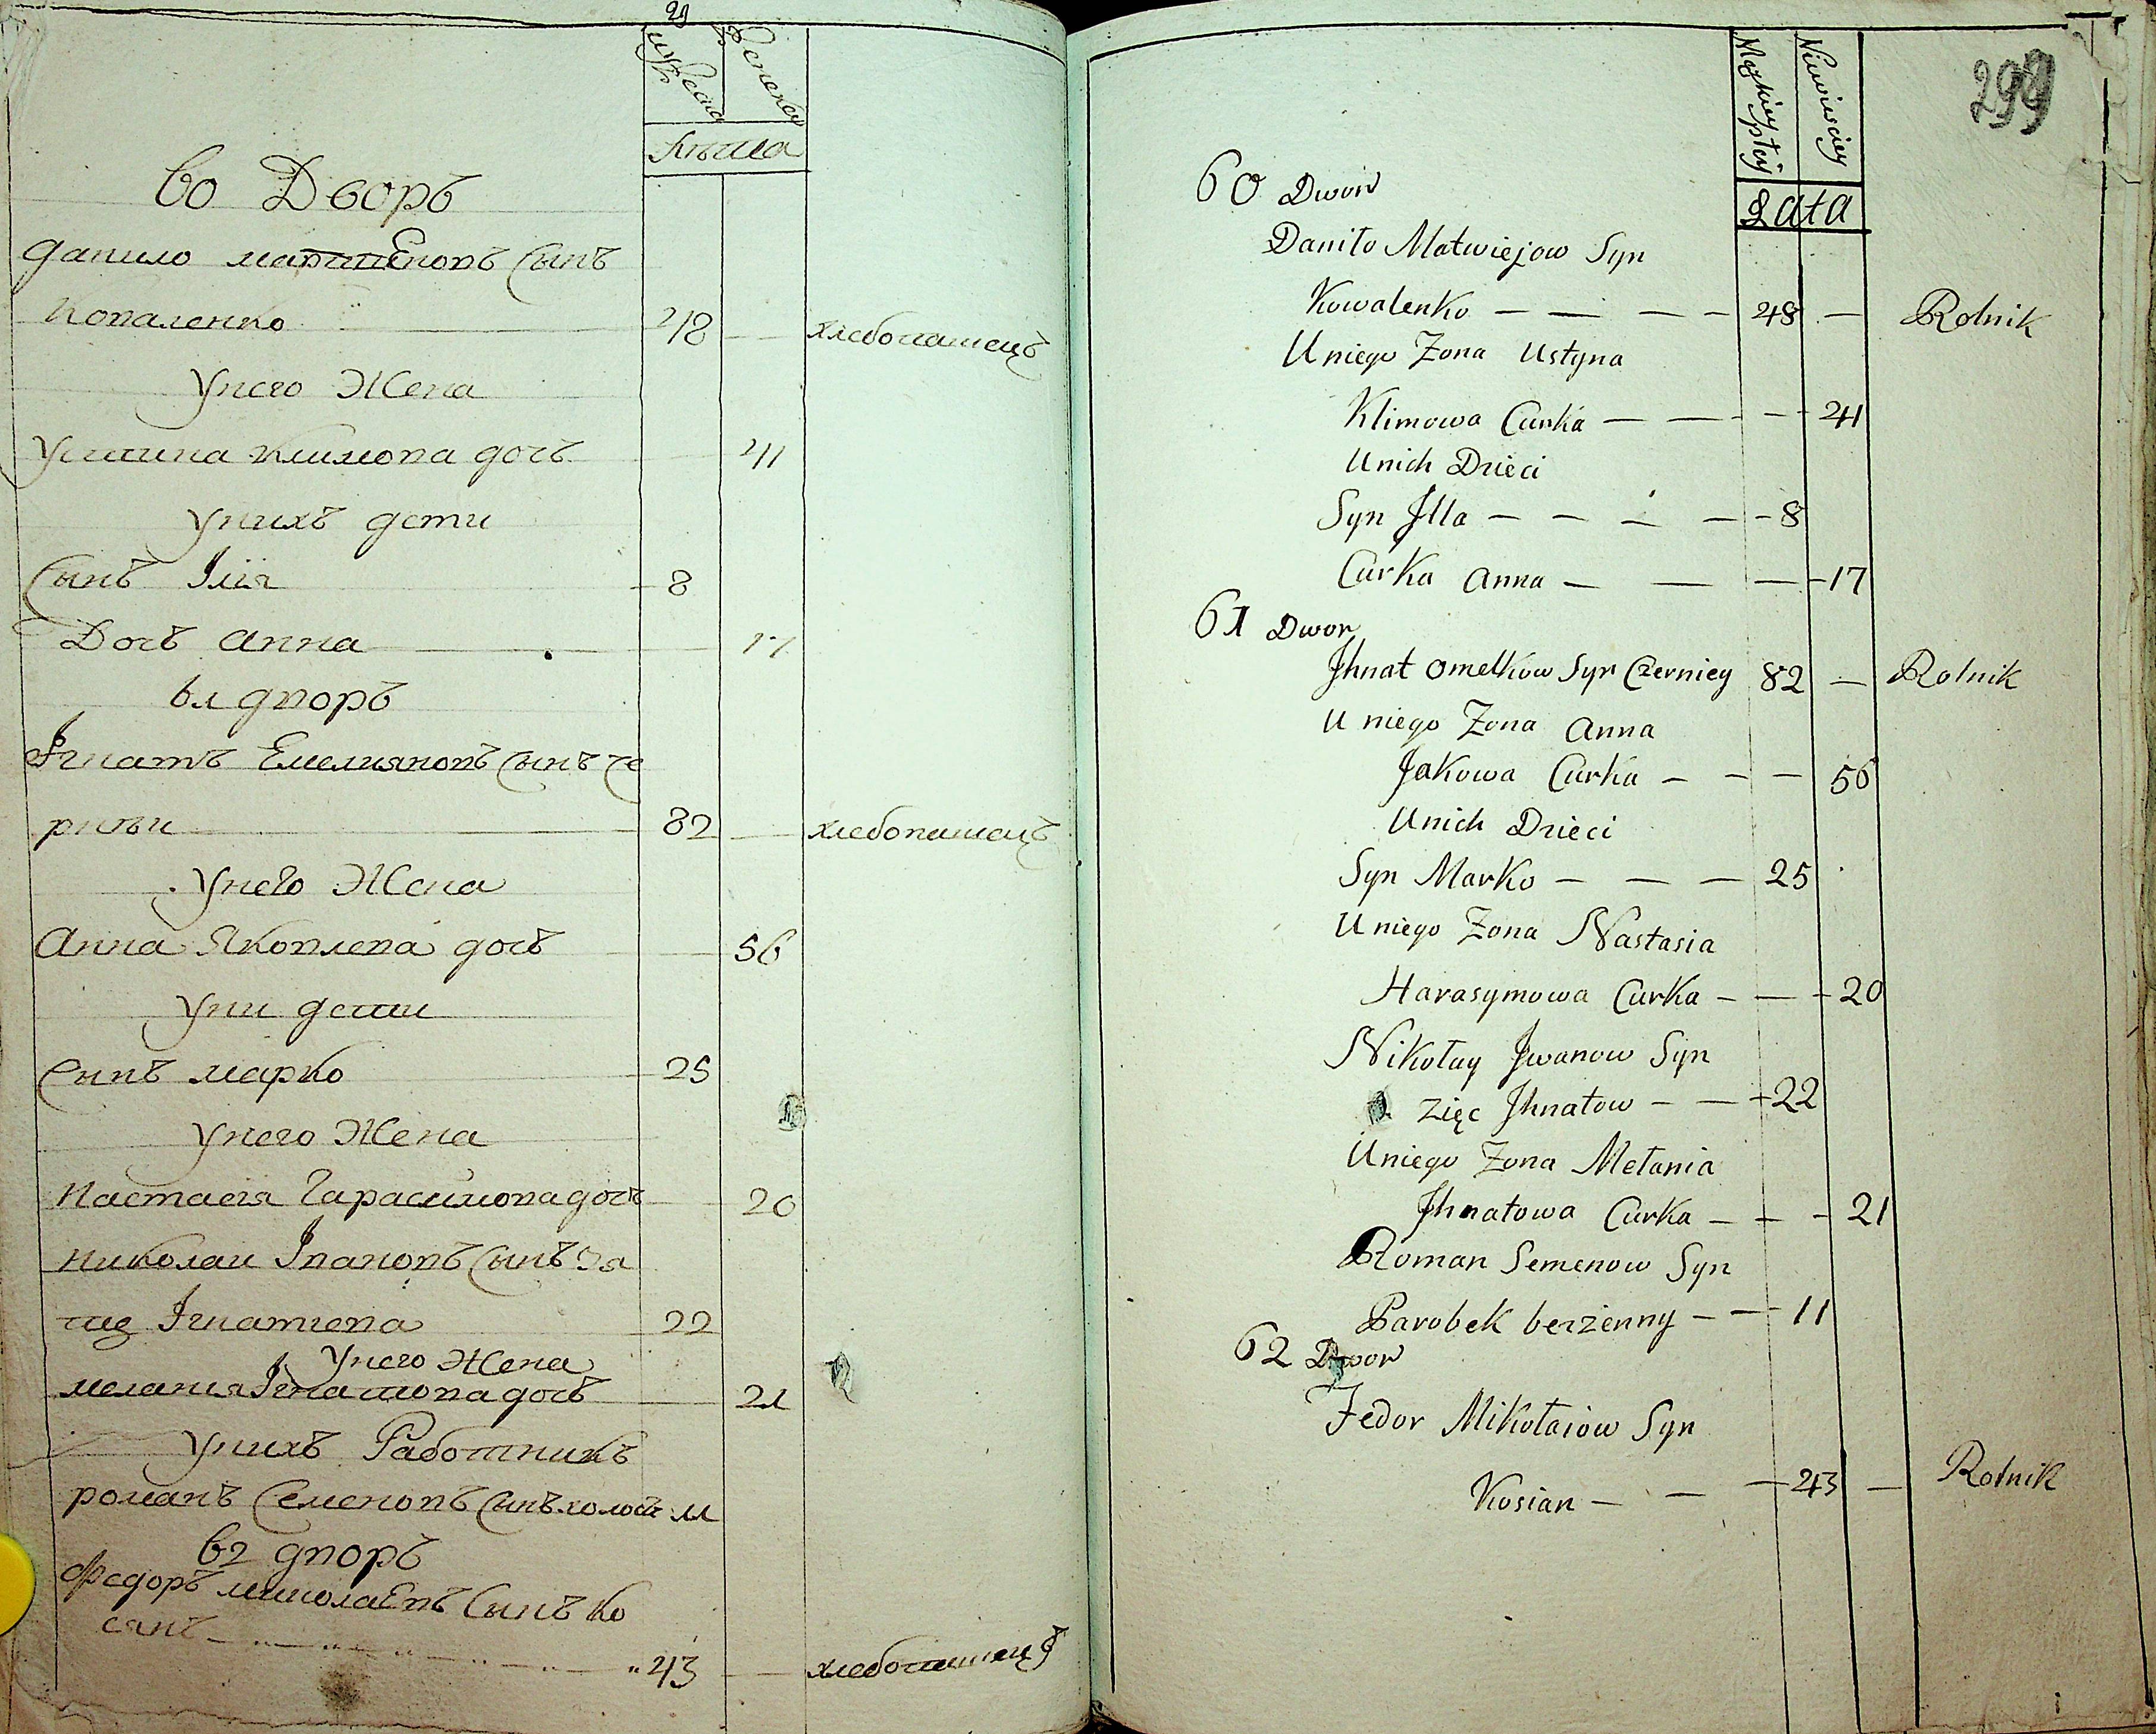 29
мужеска
женска
лѣта
60 Дворъ
Данило мартиновъ Сынъ
коваленко 48 — хлебопашецъ
Унего Жена
Устина климова дочъ 41
Унихъ дети
Сынъ Ілїя 8
Дочъ Анна 17
61 дворъ
Ігнатъ Емелияновъ Сынъ че
рнѣи 82 — хлебопашецъ
Унего Жена
Анна Яковлева дочъ 56
Уни дети
Сынъ марко 25
Унего Жена
Настасїя Гарасимова дочъ 20
николаи Івановъ Сынъ зя
Ігнатиева 22
Унего Жена
меланїя Ігнатова дочъ 21
Унихъ Работникъ
романъ Семеновъ Сынъ холостъ 11
62 дворъ
Федоръ миколаЕвъ Сынъ Ко
сянъ 43 — хлебопашецъ
299
Męzkiey płcij
Niewiesciey
Lata
60 Dwor
Daniło Matwiejow Syn
Kowalenko — — — — 48 — Rolnik
Uniego Zona Ustyna
Klimowa Curka — — — — 41
Unich Dzieci
Syn Jlla — — — — 8
Curka Anna — — — 17
61 Dwor
Jhnat Omelkow Syn Czerniey 82 — Rolnik
U niego Zona Anna
Jakowa Curka — — — 56
Unich Dzieci
Syn Marko — — — 25
U niego Zona Nastasia
Harasymowa Curka — — — 20
Nikołay Jwanow Syn
Zięc Jhnatow — — — 22
Uniego Zona Mełania
Jhnatowa Curka — — — 21
Roman Semenow Syn
Parobek berzenny — — 11
62 Dwor
Fedor Mikołaiow Syn
Kosian — — — 43 — Rolnik